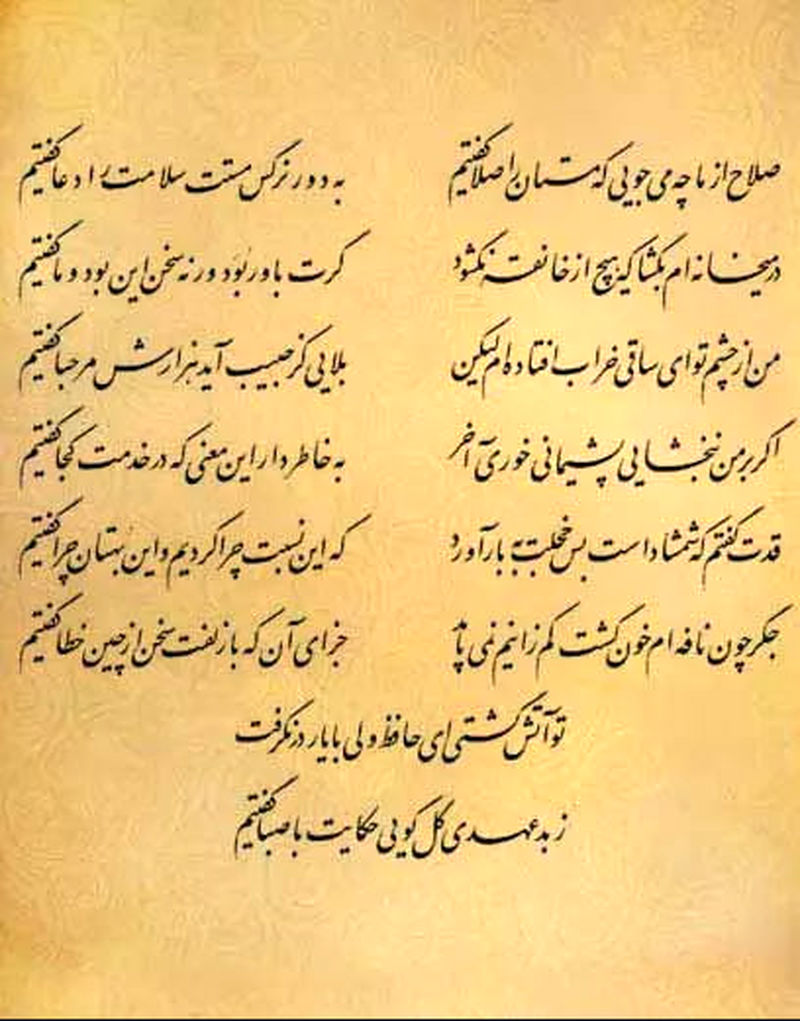 صلاح از ما چه می جویی که مستان را صلا گفتیم به دور نرگس مستت سلامت را دعا گفتیم
در میخانه ام بگشا که هیچ از خانقه نگشود گرت باور بود ورنه سخن این بود و ما گفتیم
من از چشم تو ای ساقی خراب افتاده ام لیکن بلایی کز حبیب آید هزارش مرحبا گفتیم
اگر بر من نبخشایی پشیمانی خوری آخر به خاطر دار این معنی که در خدمت کجا گفتیم
قدت گفتم که شمشاد است بس خجلت به بار آورد که این نسبت چرا کردیم و این بهتان چرا گفتیم
جگر چون نافه ام خون گشت کم زانیم نمی باید جزای آن که با زلفت سخن از چین خطا گفتیم
تو آتش گشتی ای حافظ ولی با یار درنگرفت
ز بدعهدی گل گویی حکایت با صبا گفتیم